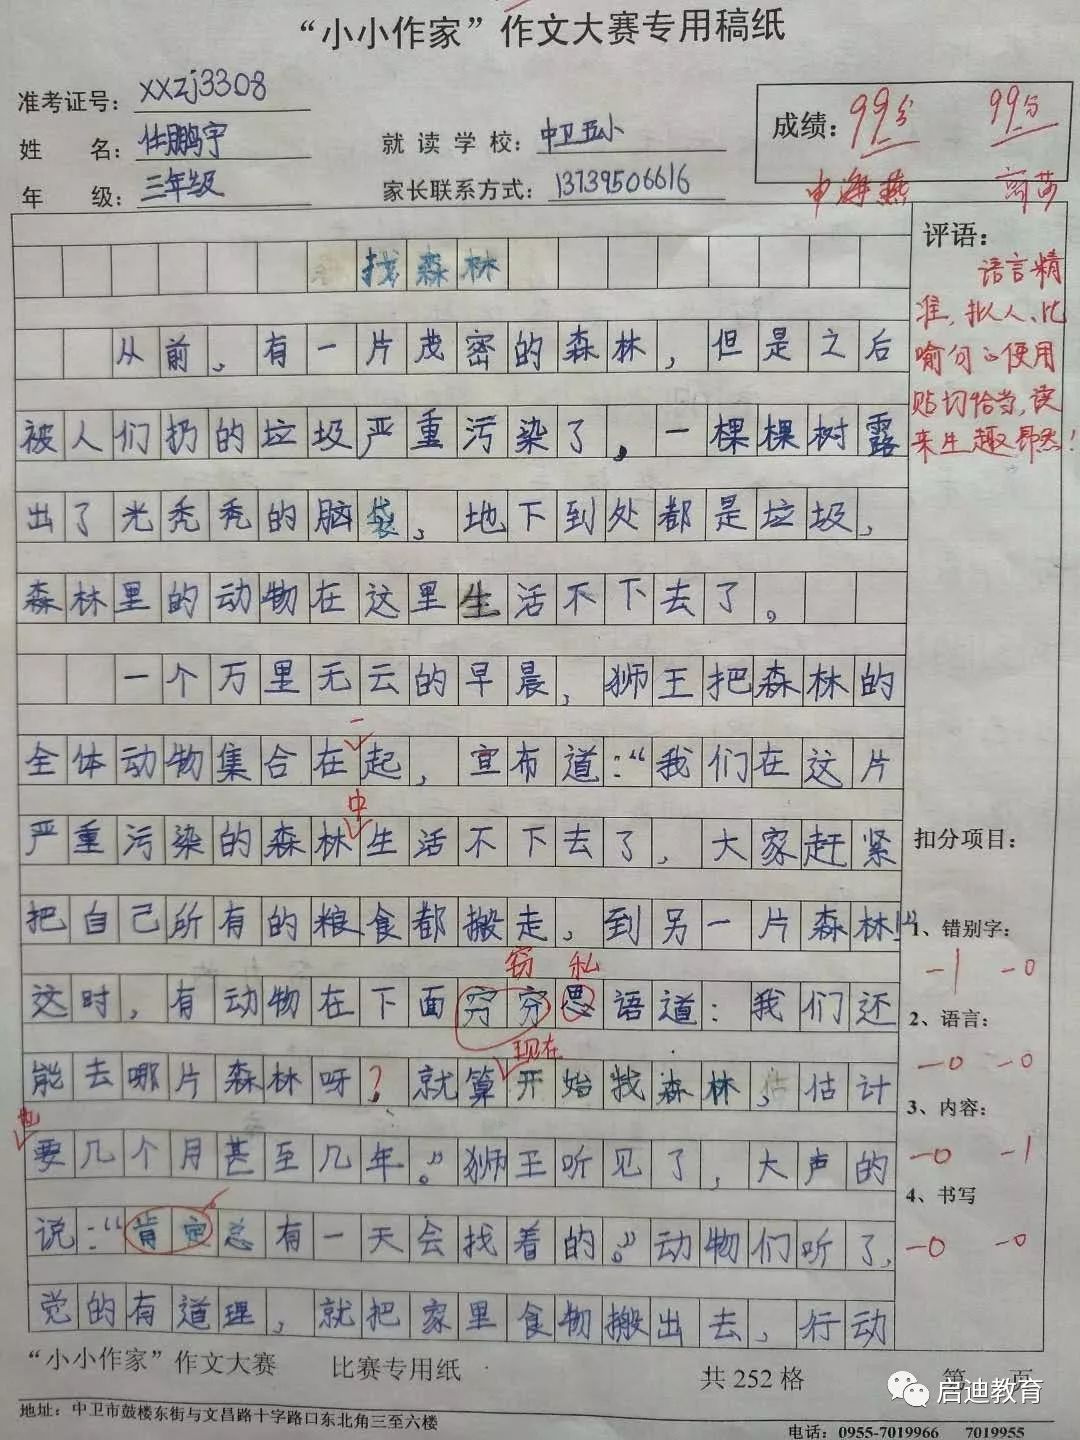 “小小作家”作文大赛专用稿纸
准考证号：xxzj3308
姓 名：任鹏宇
就读学校：中卫五小
年 级：三年级
家长联系方式：13739506616
成绩：99分 99分
申海燕
找森林
从前，有一片茂密的森林，但是之后
被人们扔的垃圾严重污染了，一棵棵树露
出了光秃秃的脑袋，地下到处都是垃圾，
森林里的动物在这里生活不下去了。
一个万里无云的早晨，狮王把森林的
一
全体动物集合在起，宣布道：“我们在这片
中
严重污染的森林生活不下去了，大家赶紧
把自己所有的粮食都搬走，到另一片森林!”
窃 私
这时，有动物在下面穷穷思语道：我们还
现在
能去哪片森林呀？就算开始找森林，估计
也
要几个月甚至几年。”狮王听见了，大声的
说：“肯定总有一天会找着的。”动物们听了，
觉的有道理，就把家里食物搬出去，行动
评语：
语言精
准，拟人、比
喻句的使用
贴切恰当，读
来生趣昂然！
扣分项目：
1、错别字：
-1 -0
2、语言：
-0 -0
3、内容：
-0 -1
4、书写
-0 -0
“小小作家”作文大赛 比赛专用纸 共 252 格 第 页
启迪教育
地址：中卫市鼓楼东街与文昌路十字路口东北角三至六楼
电话：0955-7019966 7019955